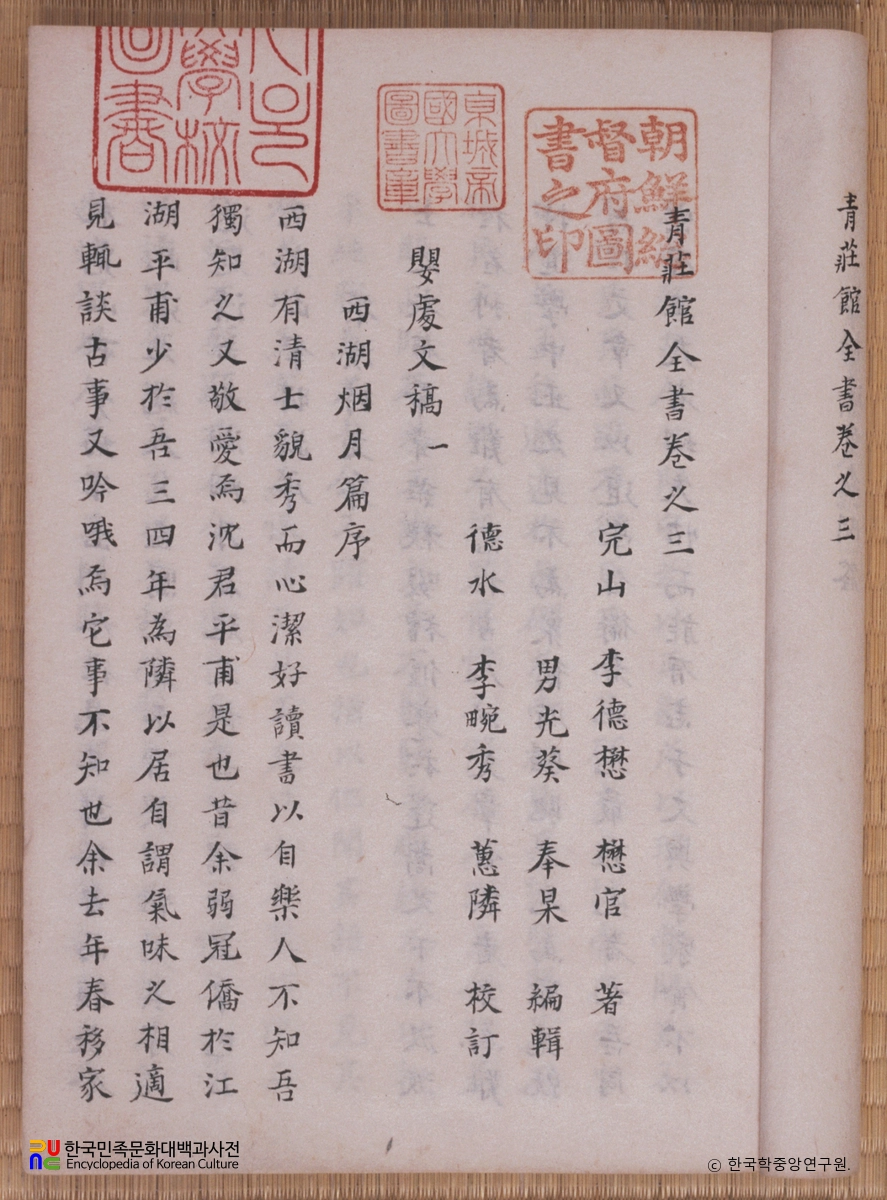 青莊館全書卷之三
青莊館全書卷之三
完山 李德懋 懋官 著
男光葵 奉杲 編輯
德水 李畹秀 蕙隣 校訂
嬰處文稿一
西湖烟月篇序
西湖有清士貌秀而心潔好讀書以自樂人不知吾
獨知之又敬愛焉沈君平甫是也昔余弱冠僑於江
湖平甫少於吾三四年為隣以居自謂氣味之相適
見輒談古事又吟哦焉它事不知也余去年春移家
朝鮮總
督府圖
書之印
京城帝
國大學
圖書章
學校
圖書
한국민족문화대백과사전
Encyclopedia of Korean Culture
© 한국학중앙연구원.